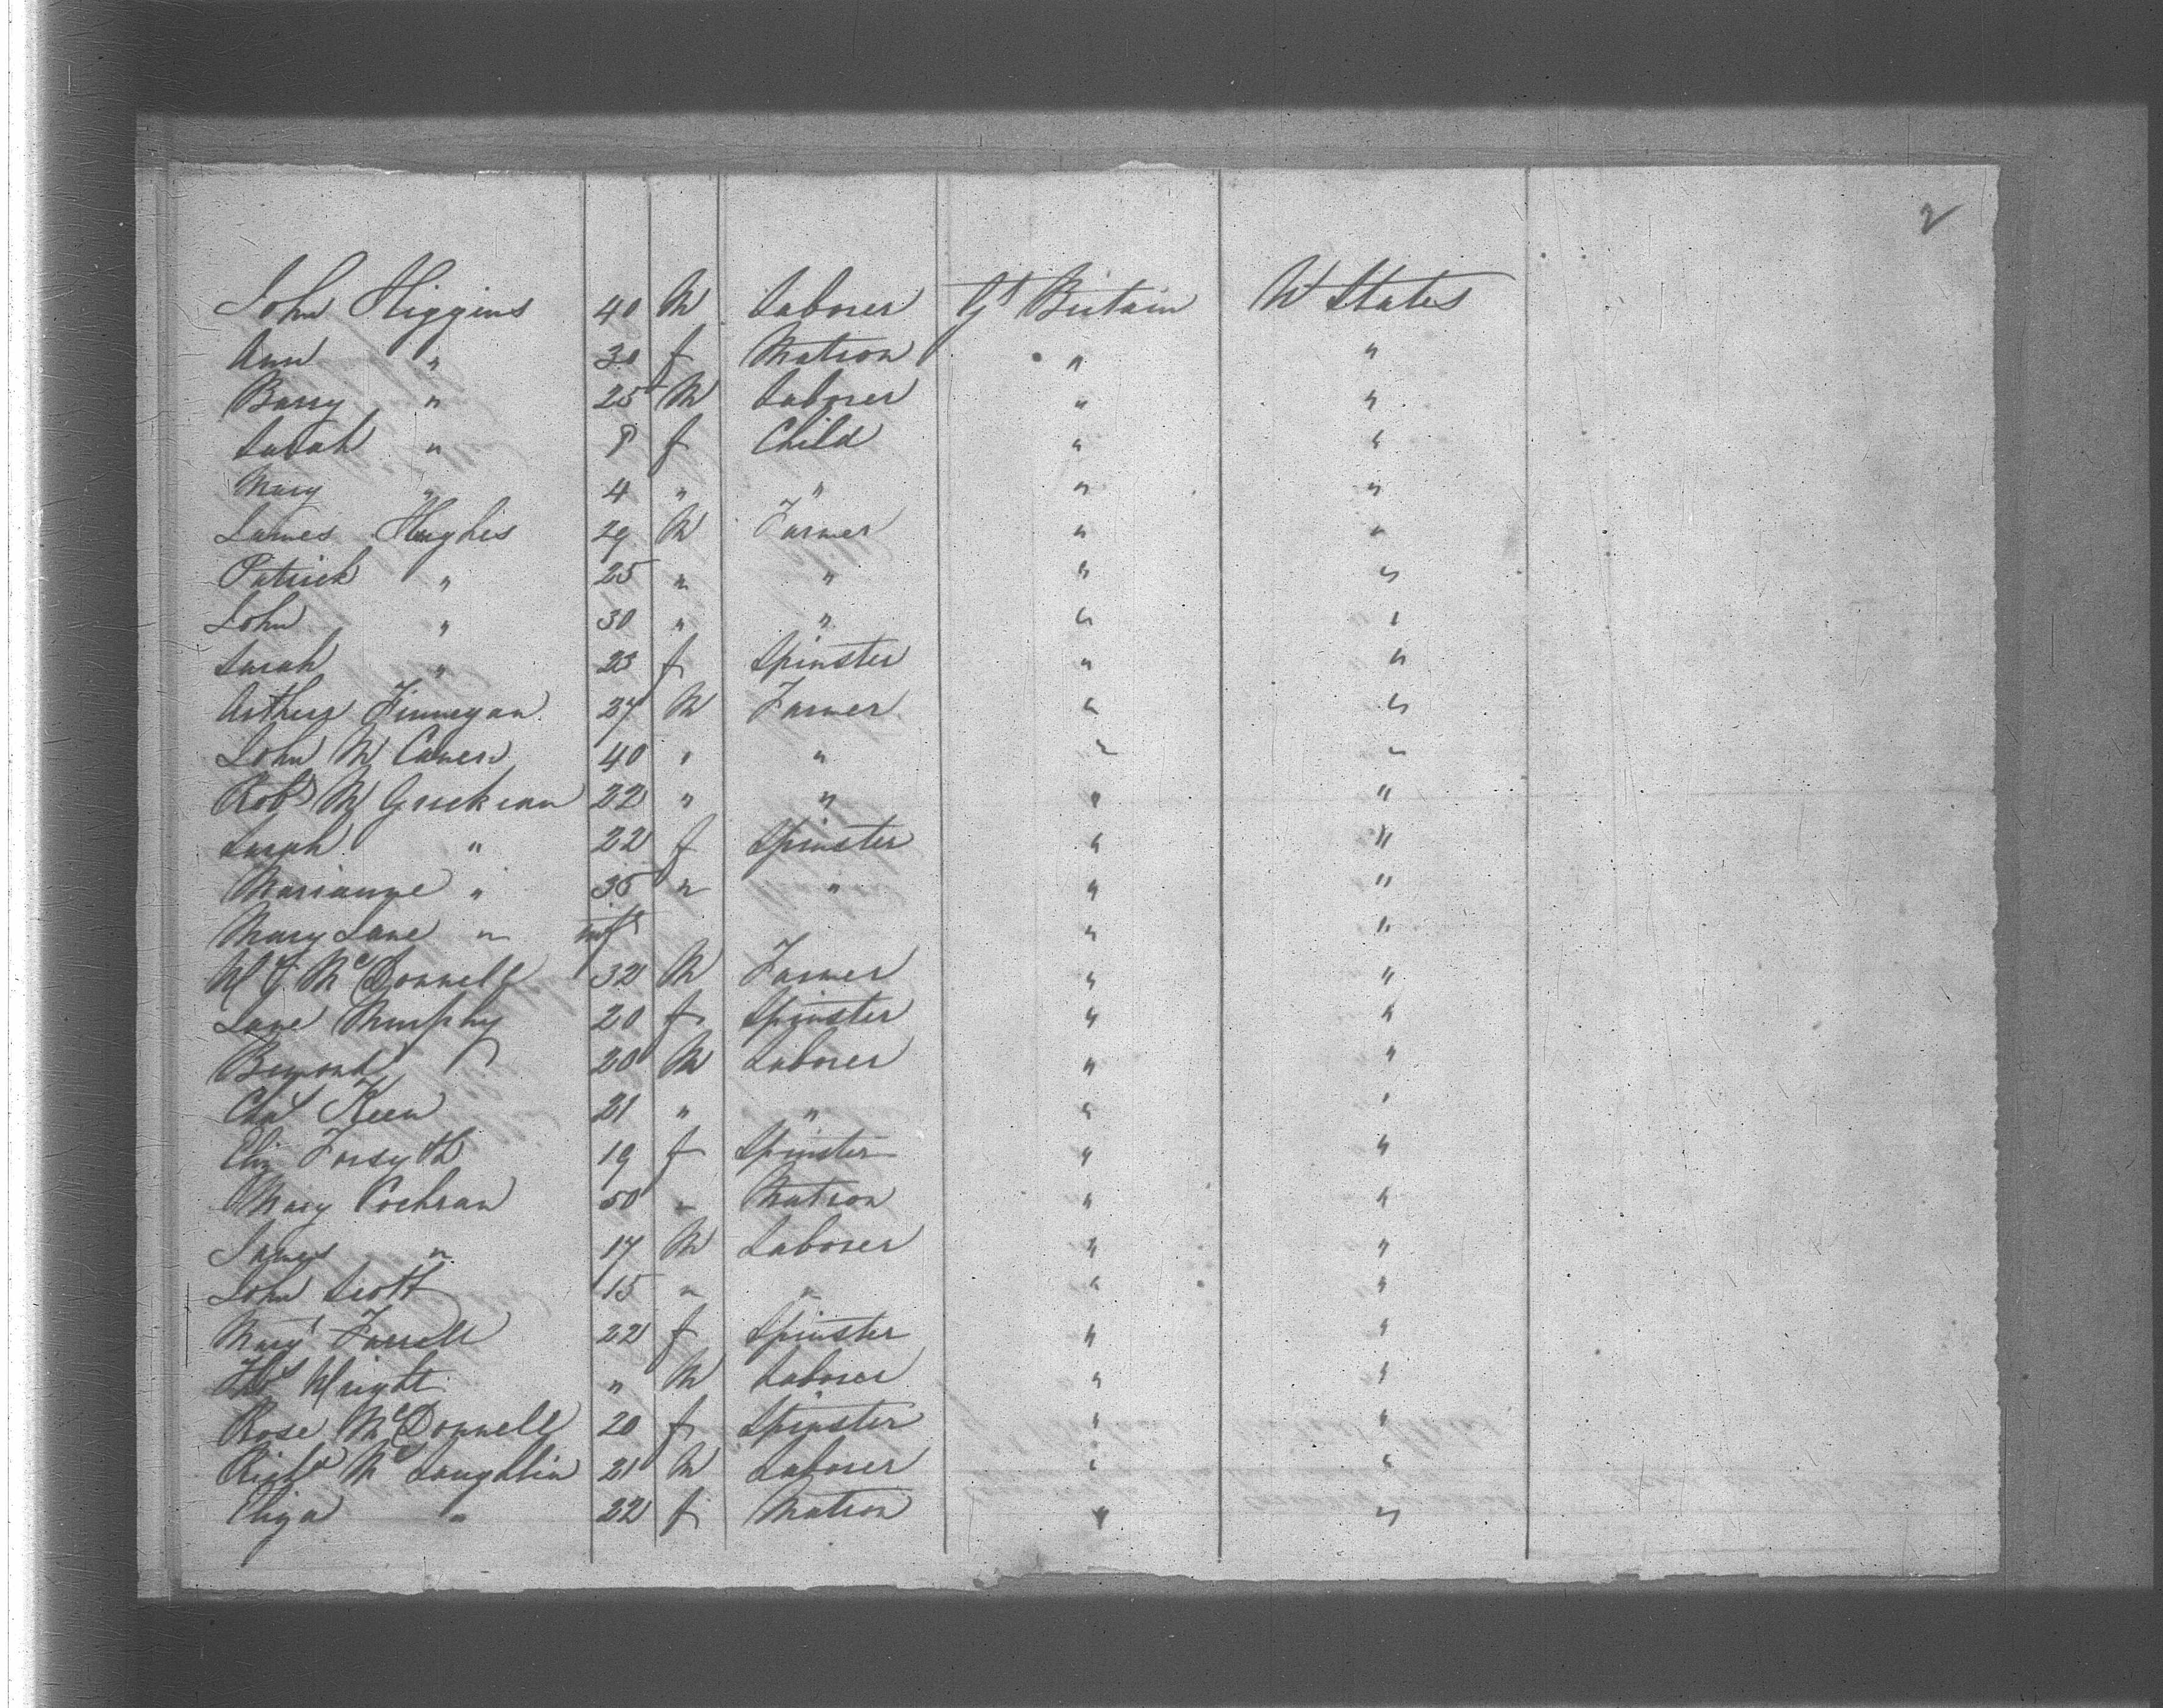 2
John Higgins 40 M Laborer Gt Britain U States
Ann " 30 f Matron " "
Barry " 25 M Laborer " "
Sarah " 8 f Child " "
Mary " 4 " " " "
James Hughes 29 M Farmer " "
Patrick " 25 " " " "
John " 30 " " " "
Sarah " 23 f Spinster " "
Arthur Finnegan 27 M Farmer " "
John Mc 40 " " " "
Robt Mc 22 " " " "
Sarah " 22 f Spinster " "
Marianne " 35 " " " "
Mary Jane " inft " "
Mc Donnell 32 M Farmer " "
Jane Murphy 20 f Spinster " "
20 M Laborer " "
Chas Keen 21 " " " "
Eliz Forsyth 19 f Spinster " "
Mary Cochran 50 " Matron " "
James " 17 M Laborer " "
John Scott 15 " " " "
Mary Farrell 22 f Spinster " "
Thos Wright " M Laborer " "
Rose McDonnell 20 f Spinster " "
Richd Mc Laughlin 21 M Laborer " "
Eliza " 22 f Matron " "